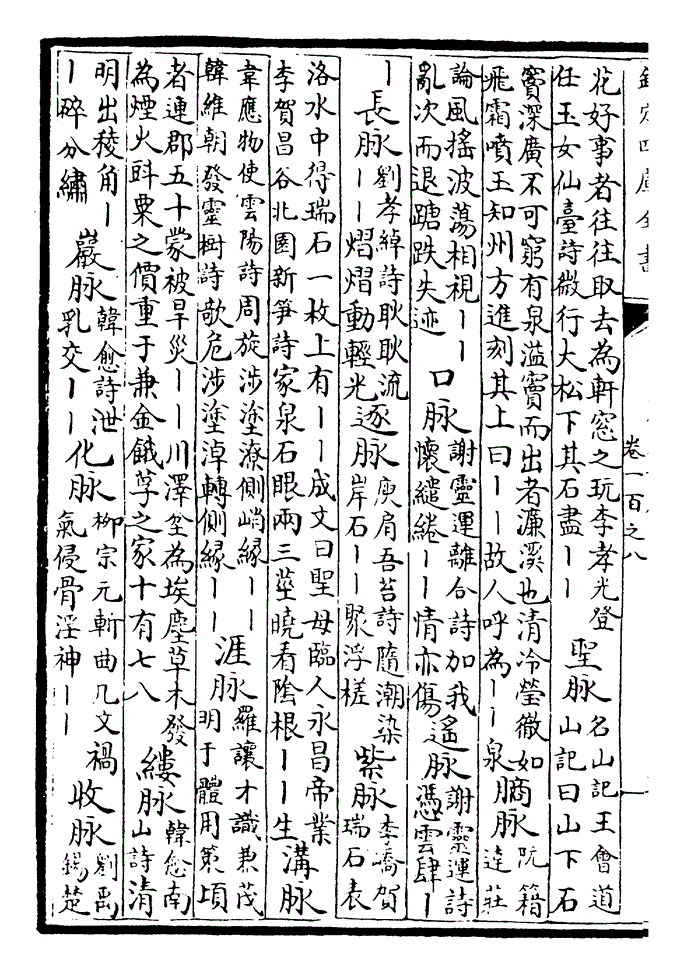 欽定四庫全書
卷一百之八
花好事者往往取去為軒窓之玩李孝光登
任玉女仙臺詩微行大松下其石盡丨丨
聖脉
名山記王會道
山記曰山下石
竇深廣不可窮有泉溢竇而出者濂溪也清冷瑩徹如
飛霜噴玉知州方進刻其上曰丨丨故人呼為丨丨泉
脉
阮籍
達莊
論風搖波蕩相視丨丨
亂次而退跌失迹
口脉
謝靈運離合詩加我
懷繾綣丨丨情亦傷
遙脉
謝靈運詩
憑雲肆丨
丨
長脉
劉孝綽詩耿耿流
丨丨熠熠動輕光
逐脉
庾肩吾苔詩隨潮染
岸石丨丨聚浮槎
紫脉
李嶠賀
瑞石表
洛水中得瑞石一枚上有丨丨成文曰聖母臨人永昌帝業
李賀昌谷北園新笋詩家泉石眼兩三莖曉看陰根丨丨生
溝脉
韋應物使雲陽詩周旋涉塗潦側峭緣丨丨
韓維朝發靈樹詩欹危涉塗淖轉側緣丨丨
涯脉
羅讓才識兼茂
明于體用策頃
者連郡五十蒙被旱災丨丨川澤坌為埃塵草木發
為煙火㪷粟之價重于兼金餓莩之家十有七八
縷脉
韓愈南
山詩清
明出稜角丨
丨碎分繡
巖脉
韓愈詩泄
乳交丨丨
化脉
柳宗元斬曲几文禍
氣侵骨淫神丨丨
收脉
劉禹
錫楚